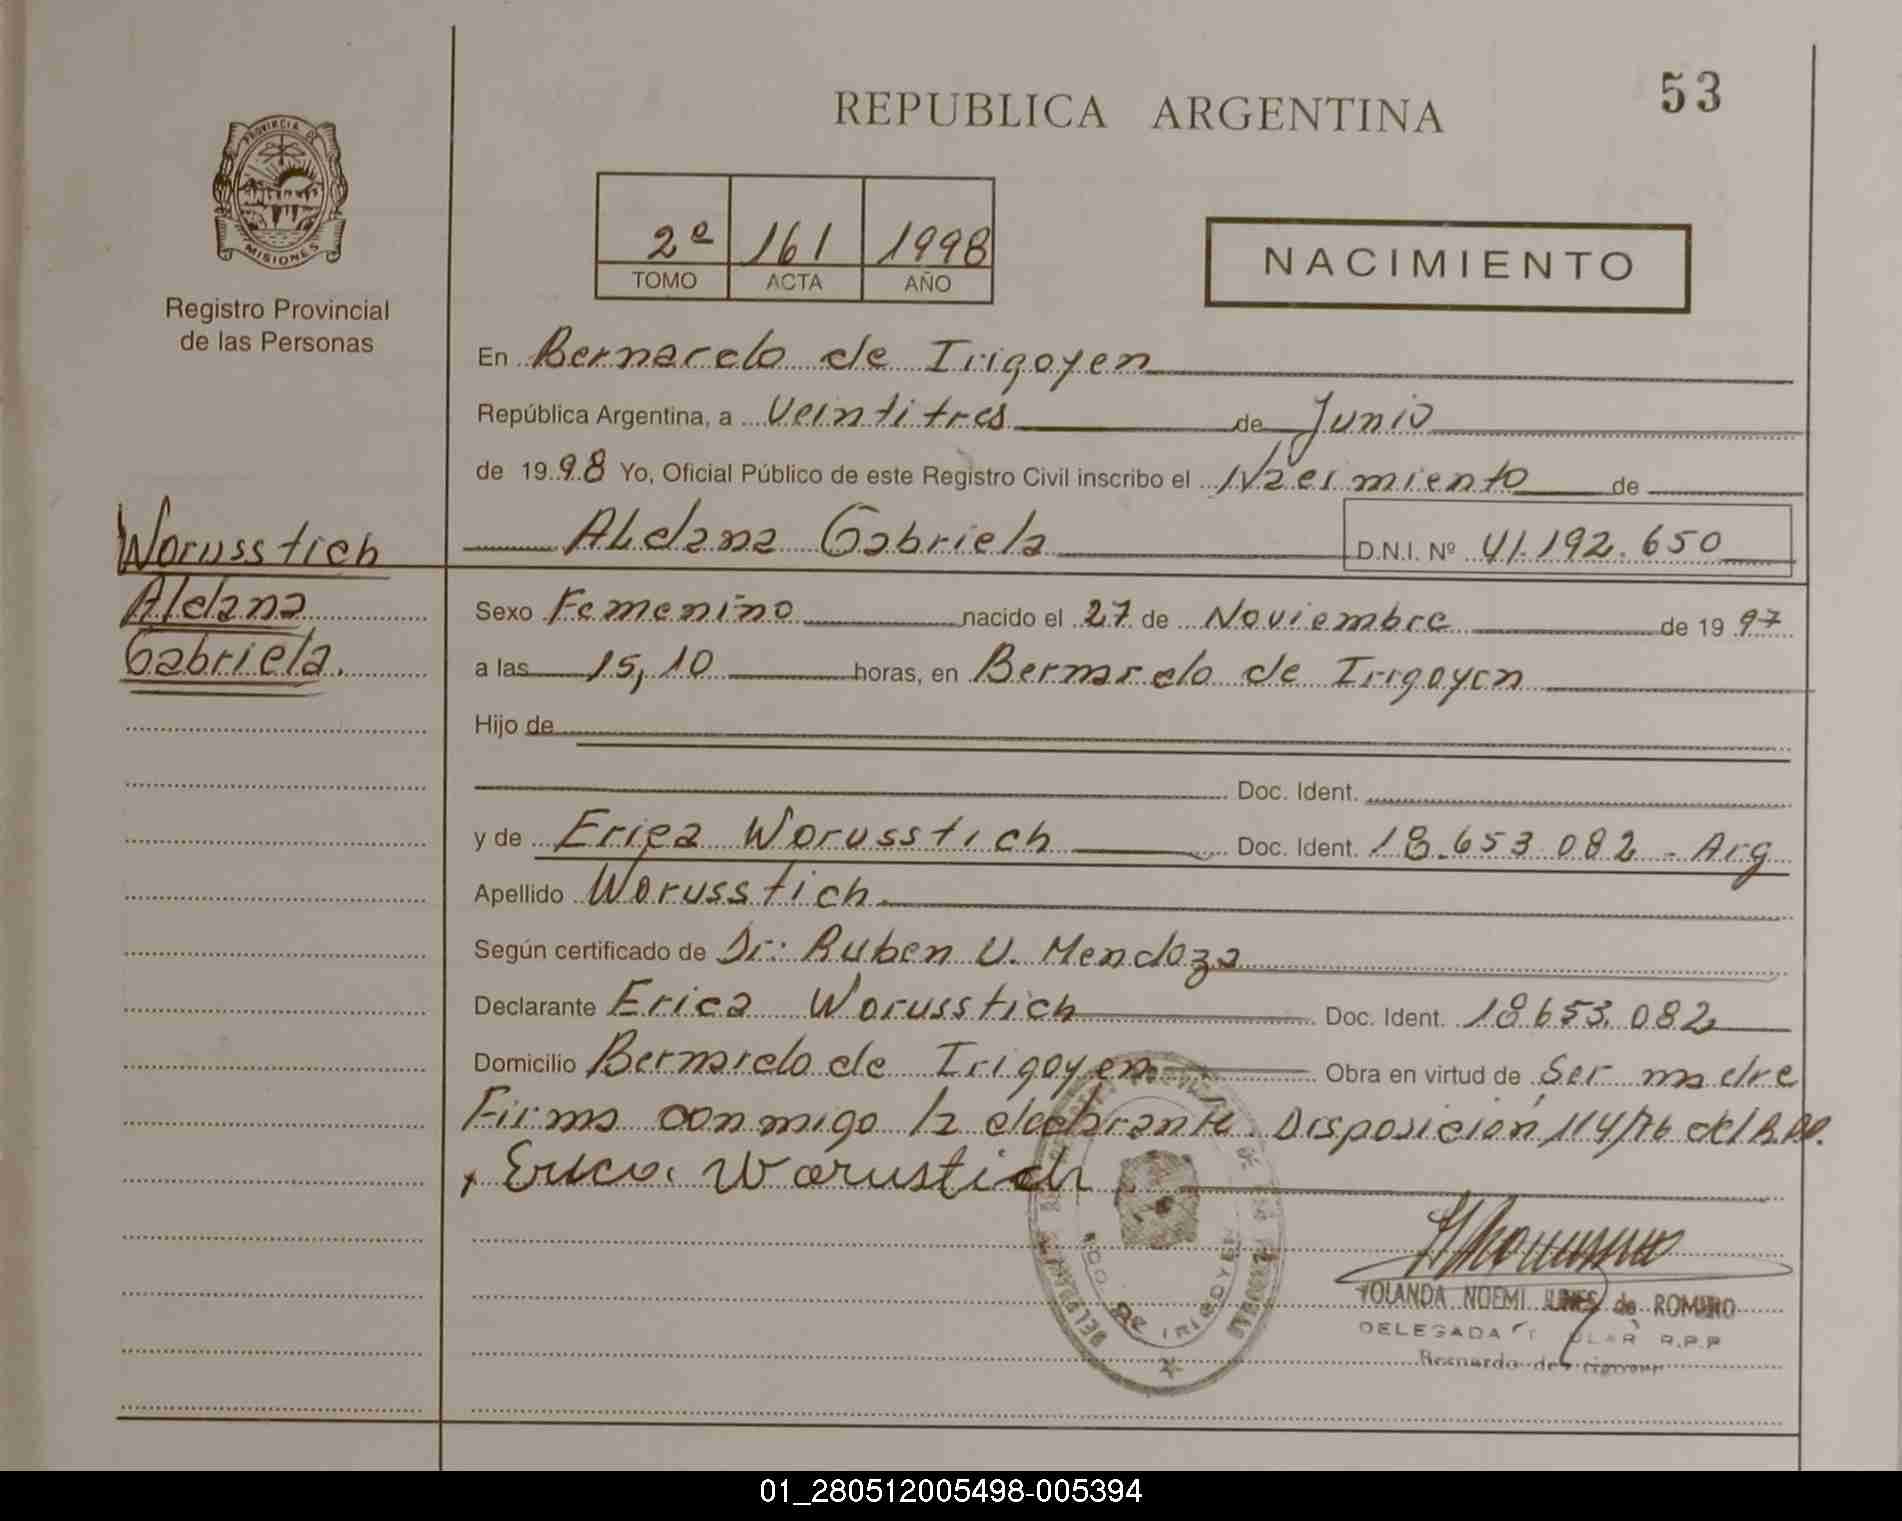 53
REPUBLICA ARGENTINA
PROVINCIA DE
MISIONES
Registro Provincial
de las Personas
2º 161 1998
TOMO ACTA AÑO
NACIMIENTO
En Bernardo de Irigoyen
República Argentina, a Veintitres de Junio
de 1998 Yo, Oficial Público de este Registro Civil inscribo el Nacimiento de
Aldana Gabriela D.N.I. Nº 41.192.650
Worusstich
Aldana
Gabriela.
Sexo Femenino nacido el 27 de Noviembre de 1997
a las 15,10 horas, en Bernardo de Irigoyen
Hijo de
Doc. Ident.
y de Erica Worusstich Doc. Ident. 18.653.082 - Arg
Apellido Worusstich
Según certificado de Dr: Ruben U. Mendoza
Declarante Erica Worusstich Doc. Ident. 18.653.082
Domicilio Bernardo de Irigoyen Obra en virtud de Ser madre
Firma conmigo la declarante. Disposición 114/76 del R.P.P.
Erica Worustich
YOLANDA NOEMI de ROMERO
DELEGADA R.P.P
Bernardo de Irigoyen
BDO DE IRIGOYEN
01_280512005498-005394